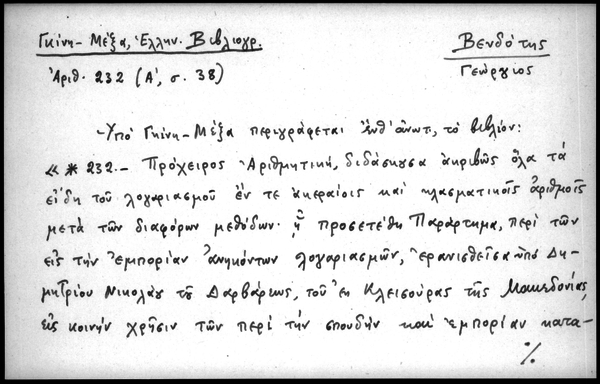 Γκίνη - Μέξα, Ἑλλην. Βιβλιογρ.
Βενδότης
Γεώργιος
Ἀριθ. 232 (Α', σ. 38)
Ὑπό Γκίνη - Μέξα περιγράφεται ἔνθ' ἀνωτ. τό βιβλίον:
« * 232. - Πρόχειρος Ἀριθμητική, διδάσκουσα ἀκριβῶς ὅλα τά
εἴδη τοῦ λογαριασμοῦ ἔν τε ἀκεραίοις καί κλασματικοῖς ἀριθμοῖς
μετά τῶν διαφόρων μεθόδων· ᾗ προσετέθη Παράρτημα, περί τῶν
εἰς τήν ἐμπορίαν ἀνηκόντων λογαριασμῶν, ἐρανισθεῖσα ὑπό Δη-
μητρίου Νικολάου τοῦ Δαρβάρεως, τοῦ ἐκ Κλεισούρας τῆς Μακεδονίας,
εἰς κοινήν χρῆσιν τῶν περί τήν σπουδήν καί ἐμπορίαν κατα-
%